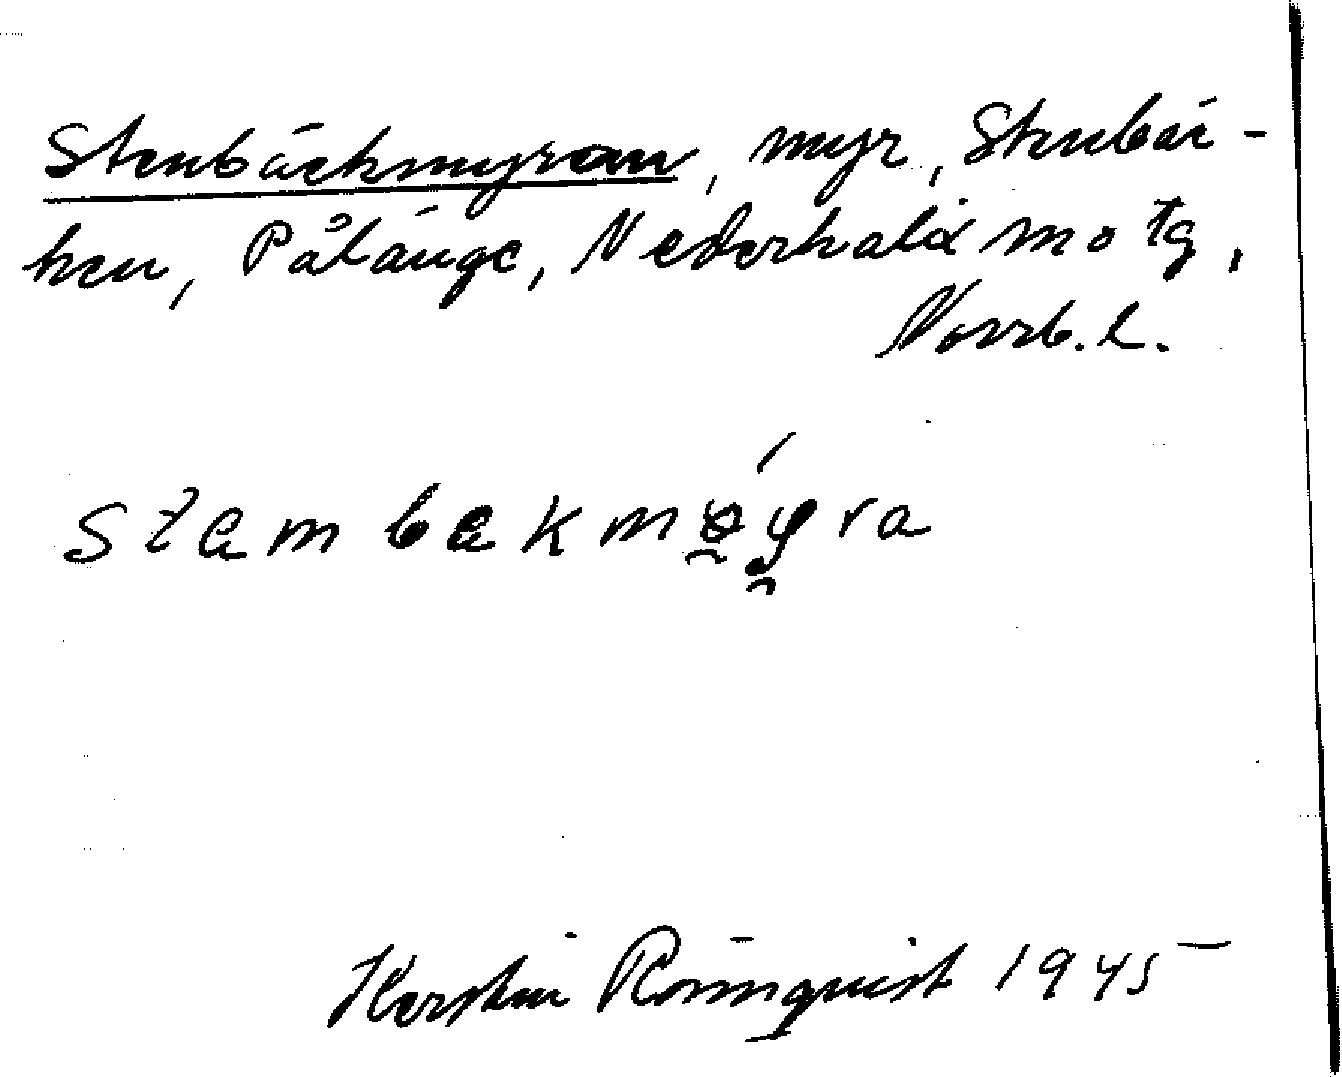 Stenbäckmyran, myr, Stenbäc-
ken, Pålänge, Nederkalix motg,
Norrb. l.
Stambakmøyra
Kerstin Rönnquist 1945